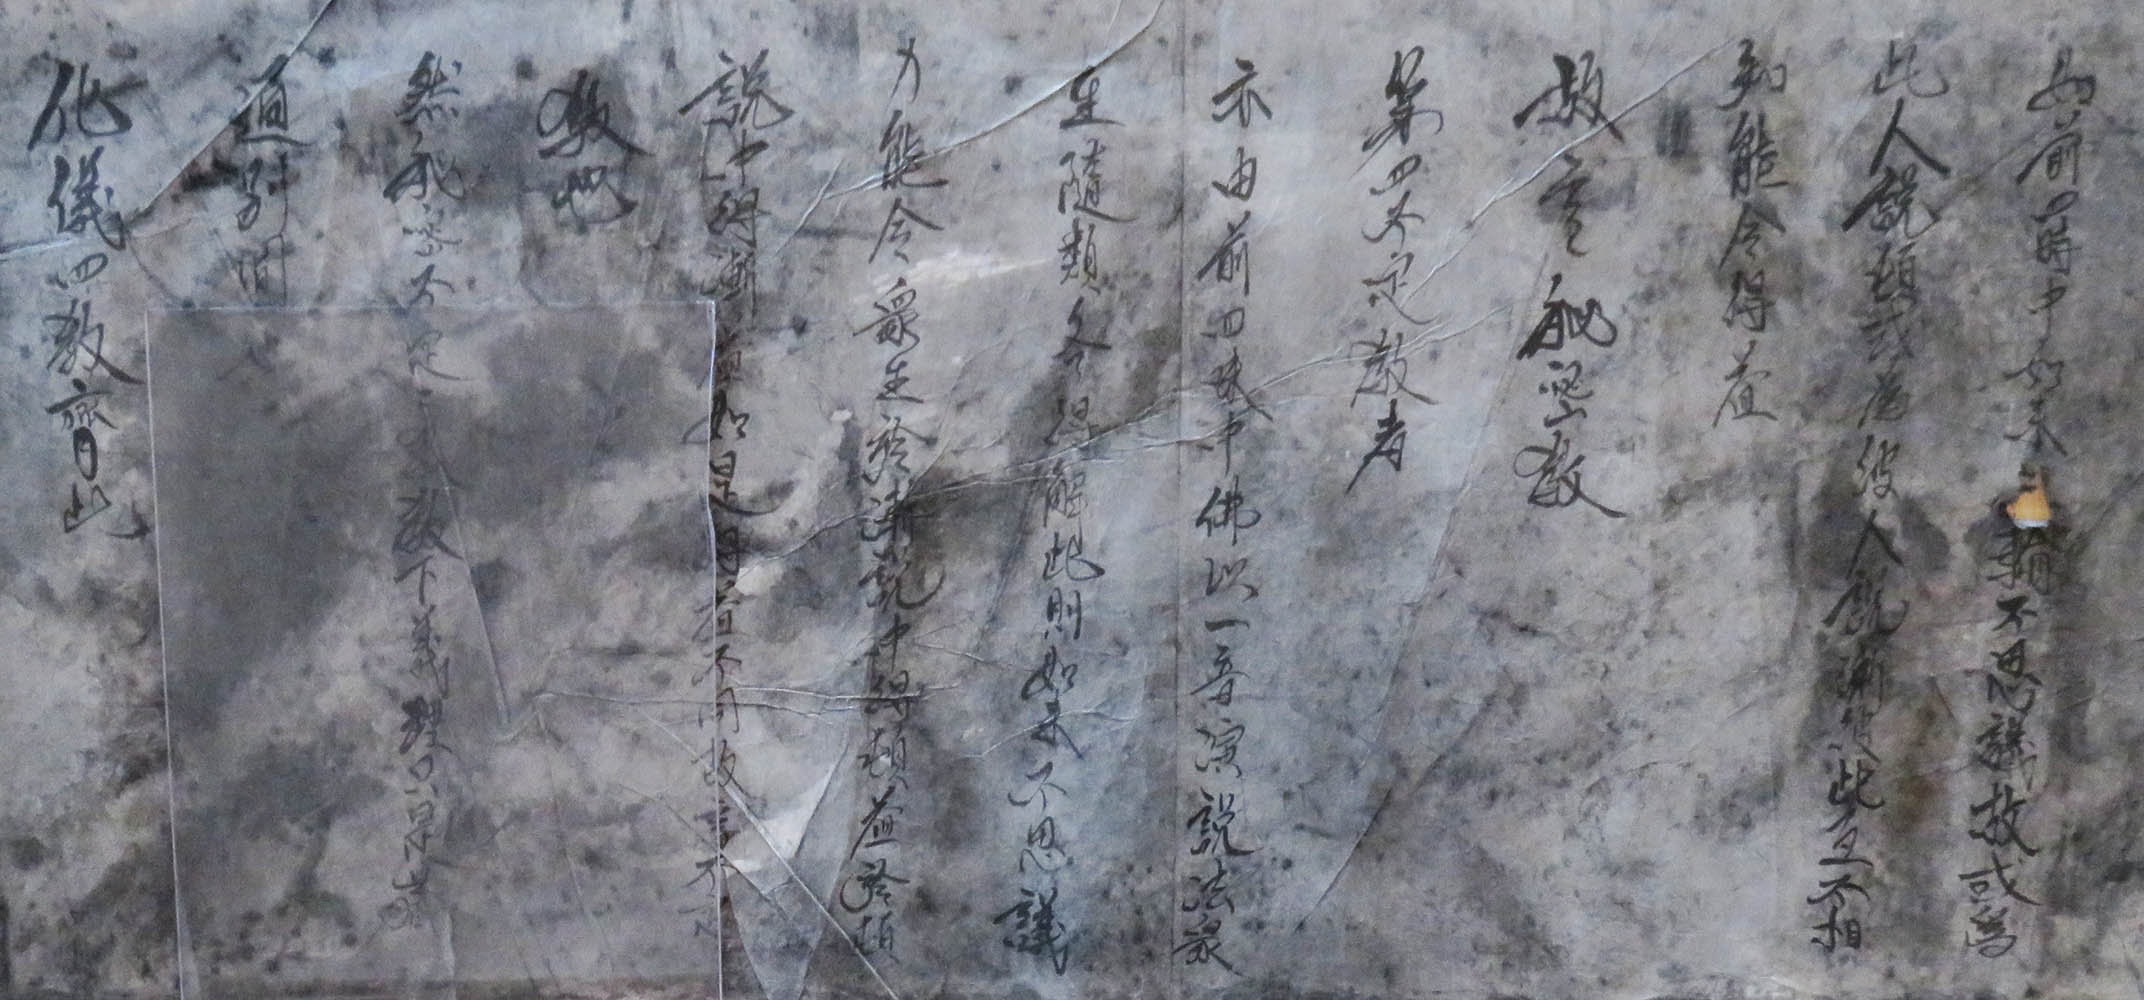 如前四時中如来三輪不思議故或爲
此人説頓或為彼人説漸彼此互不相
知能令得益
故言秘密教
第四不定教者
亦由前四味中佛以一音演説法衆
生隨類各得解此則如来不思議
力能令衆生於漸説中得頓益於頓
説中得漸益如是得益不同故言不定
教也
然秘密不定二教教下義理只是藏
通別圓
化儀四教齊此